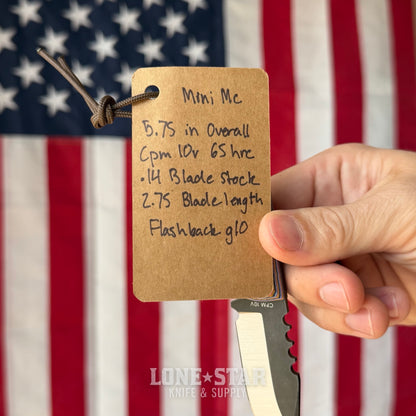 Mini Mc
5.75 in Overall
Cpm 10v 65hrc
.14 Blade Stock
2.75 Blade length
Flashback g10
CPM 10V
LONE★STAR
KNIFE & SUPPLY